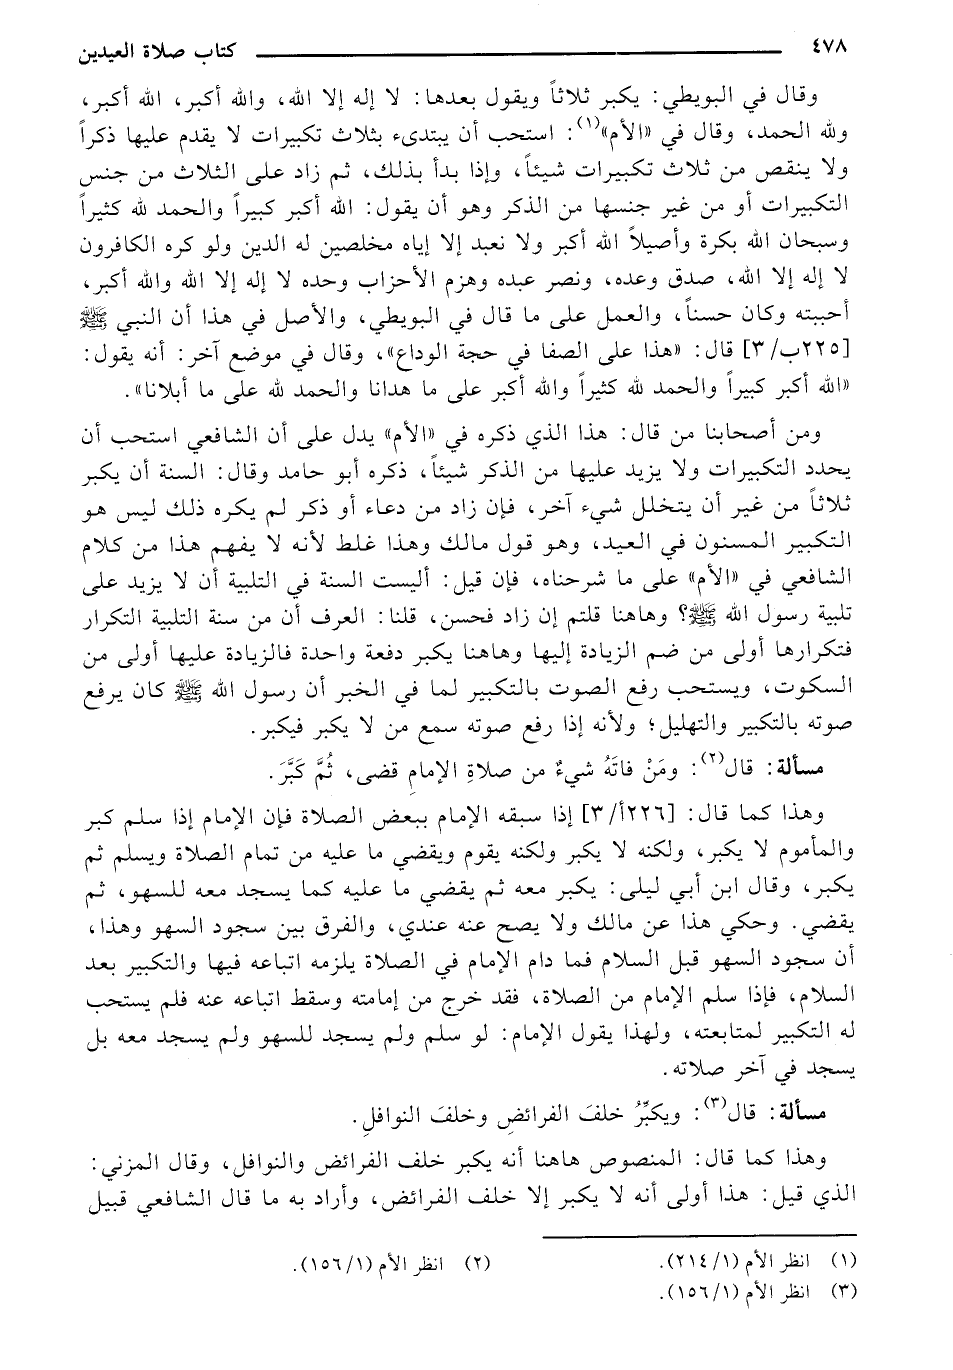 ٤٧٨ كتاب صلاة العيدين
وقال في البويطي: يكبر ثلاثاً ويقول بعدها: لا إله إلا الله، والله أكبر، الله أكبر،
ولله الحمد، وقال في «الأم»(١): استحب أن يبتدىء بثلاث تكبيرات لا يقدم عليها ذكراً
ولا ينقص من ثلاث تكبيرات شيئاً، وإذا بدأ بذلك، ثم زاد على الثلاث من جنس
التكبيرات أو من غير جنسها من الذكر وهو أن يقول: الله أكبر كبيراً والحمد لله كثيراً
وسبحان الله بكرة وأصيلاً الله أكبر ولا نعبد إلا إياه مخلصين له الدين ولو كره الكافرون
لا إله إلا الله، صدق وعده، ونصر عبده وهزم الأحزاب وحده لا إله إلا الله والله أكبر،
أحببته وكان حسناً، والعمل على ما قال في البويطي، والأصل في هذا أن النبي ﷺ
[٢٢٥ب/٣] قال: «هذا على الصفا في حجة الوداع»، وقال في موضع آخر: أنه يقول:
«الله أكبر كبيراً والحمد لله كثيراً والله أكبر على ما هدانا والحمد لله على ما أبلانا».
ومن أصحابنا من قال: هذا الذي ذكره في «الأم» يدل على أن الشافعي استحب أن
يحدد التكبيرات ولا يزيد عليها من الذكر شيئاً، ذكره أبو حامد وقال: السنة أن يكبر
ثلاثاً من غير أن يتخلل شيء آخر، فإن زاد من دعاء أو ذكر لم يكره ذلك ليس هو
التكبير المسنون في العيد، وهو قول مالك وهذا غلط لأنه لا يفهم هذا من كلام
الشافعي في «الأم» على ما شرحناه، فإن قيل: أليست السنة في التلبية أن لا يزيد على
تلبية رسول الله ﷺ؟ وهاهنا قلتم إن زاد فحسن، قلنا: العرف أن من سنة التلبية التكرار
فتكرارها أولى من ضم الزيادة إليها وهاهنا يكبر دفعة واحدة فالزيادة عليها أولى من
السكوت، ويستحب رفع الصوت بالتكبير لما في الخبر أن رسول الله ﷺ كان يرفع
صوته بالتكبير والتهليل؛ ولأنه إذا رفع صوته سمع من لا يكبر فيكبر.
مسألة: قال(٢): ومَنْ فاتَهُ شيءٌ من صلاةِ الإمامِ قضى، ثُمَّ كَبَّرَ.
وهذا كما قال: [٢٢٦أ/٣] إذا سبقه الإمام ببعض الصلاة فإن الإمام إذا سلم كبر
والمأموم لا يكبر، ولكنه لا يكبر ولكنه يقوم ويقضي ما عليه من تمام الصلاة ويسلم ثم
يكبر، وقال ابن أبي ليلى: يكبر معه ثم يقضي ما عليه كما يسجد معه للسهو، ثم
يقضي. وحكي هذا عن مالك ولا يصح عنه عندي، والفرق بين سجود السهو وهذا،
أن سجود السهو قبل السلام فما دام الإمام في الصلاة يلزمه اتباعه فيها والتكبير بعد
السلام، فإذا سلم الإمام من الصلاة، فقد خرج من إمامته وسقط اتباعه عنه فلم يستحب
له التكبير لمتابعته، ولهذا يقول الإمام: لو سلم ولم يسجد للسهو ولم يسجد معه بل
يسجد في آخر صلاته.
مسألة: قال(٣): ويكبِّرُ خلفَ الفرائضِ وخلفَ النوافلِ.
وهذا كما قال: المنصوص هاهنا أنه يكبر خلف الفرائض والنوافل، وقال المزني:
الذي قيل: هذا أولى أنه لا يكبر إلا خلف الفرائض، وأراد به ما قال الشافعي قبيل
(١) انظر الأم (٢١٤/١). (٢) انظر الأم (١٥٦/١).
(٣) انظر الأم (١٥٦/١).